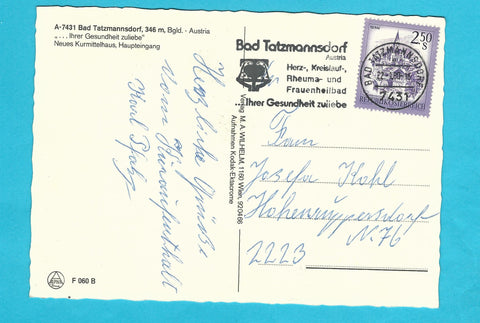 A-7431 Bad Tatzmannsdorf, 346 m, Bgld. - Austria
"... Ihrer Gesundheit zuliebe"
Neues Kurmittelhaus, Haupteingang
Herzliche Grüße
vom
Kuraufenthalt
Karl
F 060 B
Verlag M. A. WILHELM, 1160 Wien, 920466
Aufnahmen Kodak-Ektachrome
Bad Tatzmannsdorf
Austria
Herz-, Kreislauf-,
Rheuma- und
Frauenheilbad
...Ihrer Gesundheit zuliebe
2.50
S
REPUBLIK ÖSTERREICH
BAD TATZMANNSDORF
7431
Frau
Josefa Kohl
Hohenruppersdorf
N. 76
2223